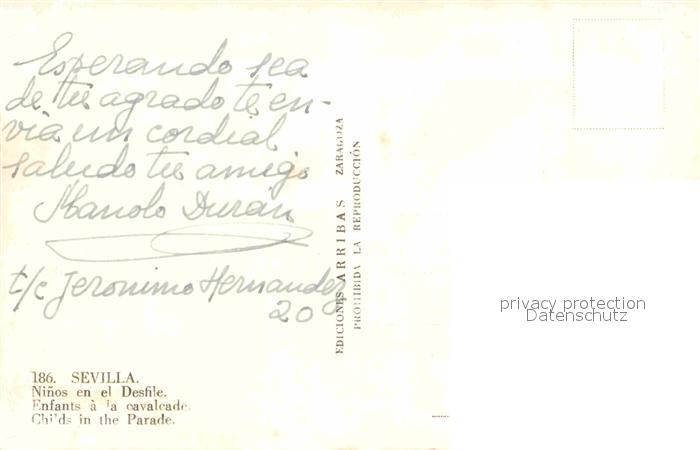 Esperando sea
de tu agrado te en-
vía un cordial
saludo tu amigo
Manolo Durán
t/c Jeronimo Hernandez
20
EDICIONES ARRIBAS ZARAGOZA
PROHIBIDA LA REPRODUCCIÓN
privacy protection
Datenschutz
186. SEVILLA.
Niños en el Desfile.
Enfants à la cavalcade.
Childs in the Parade.